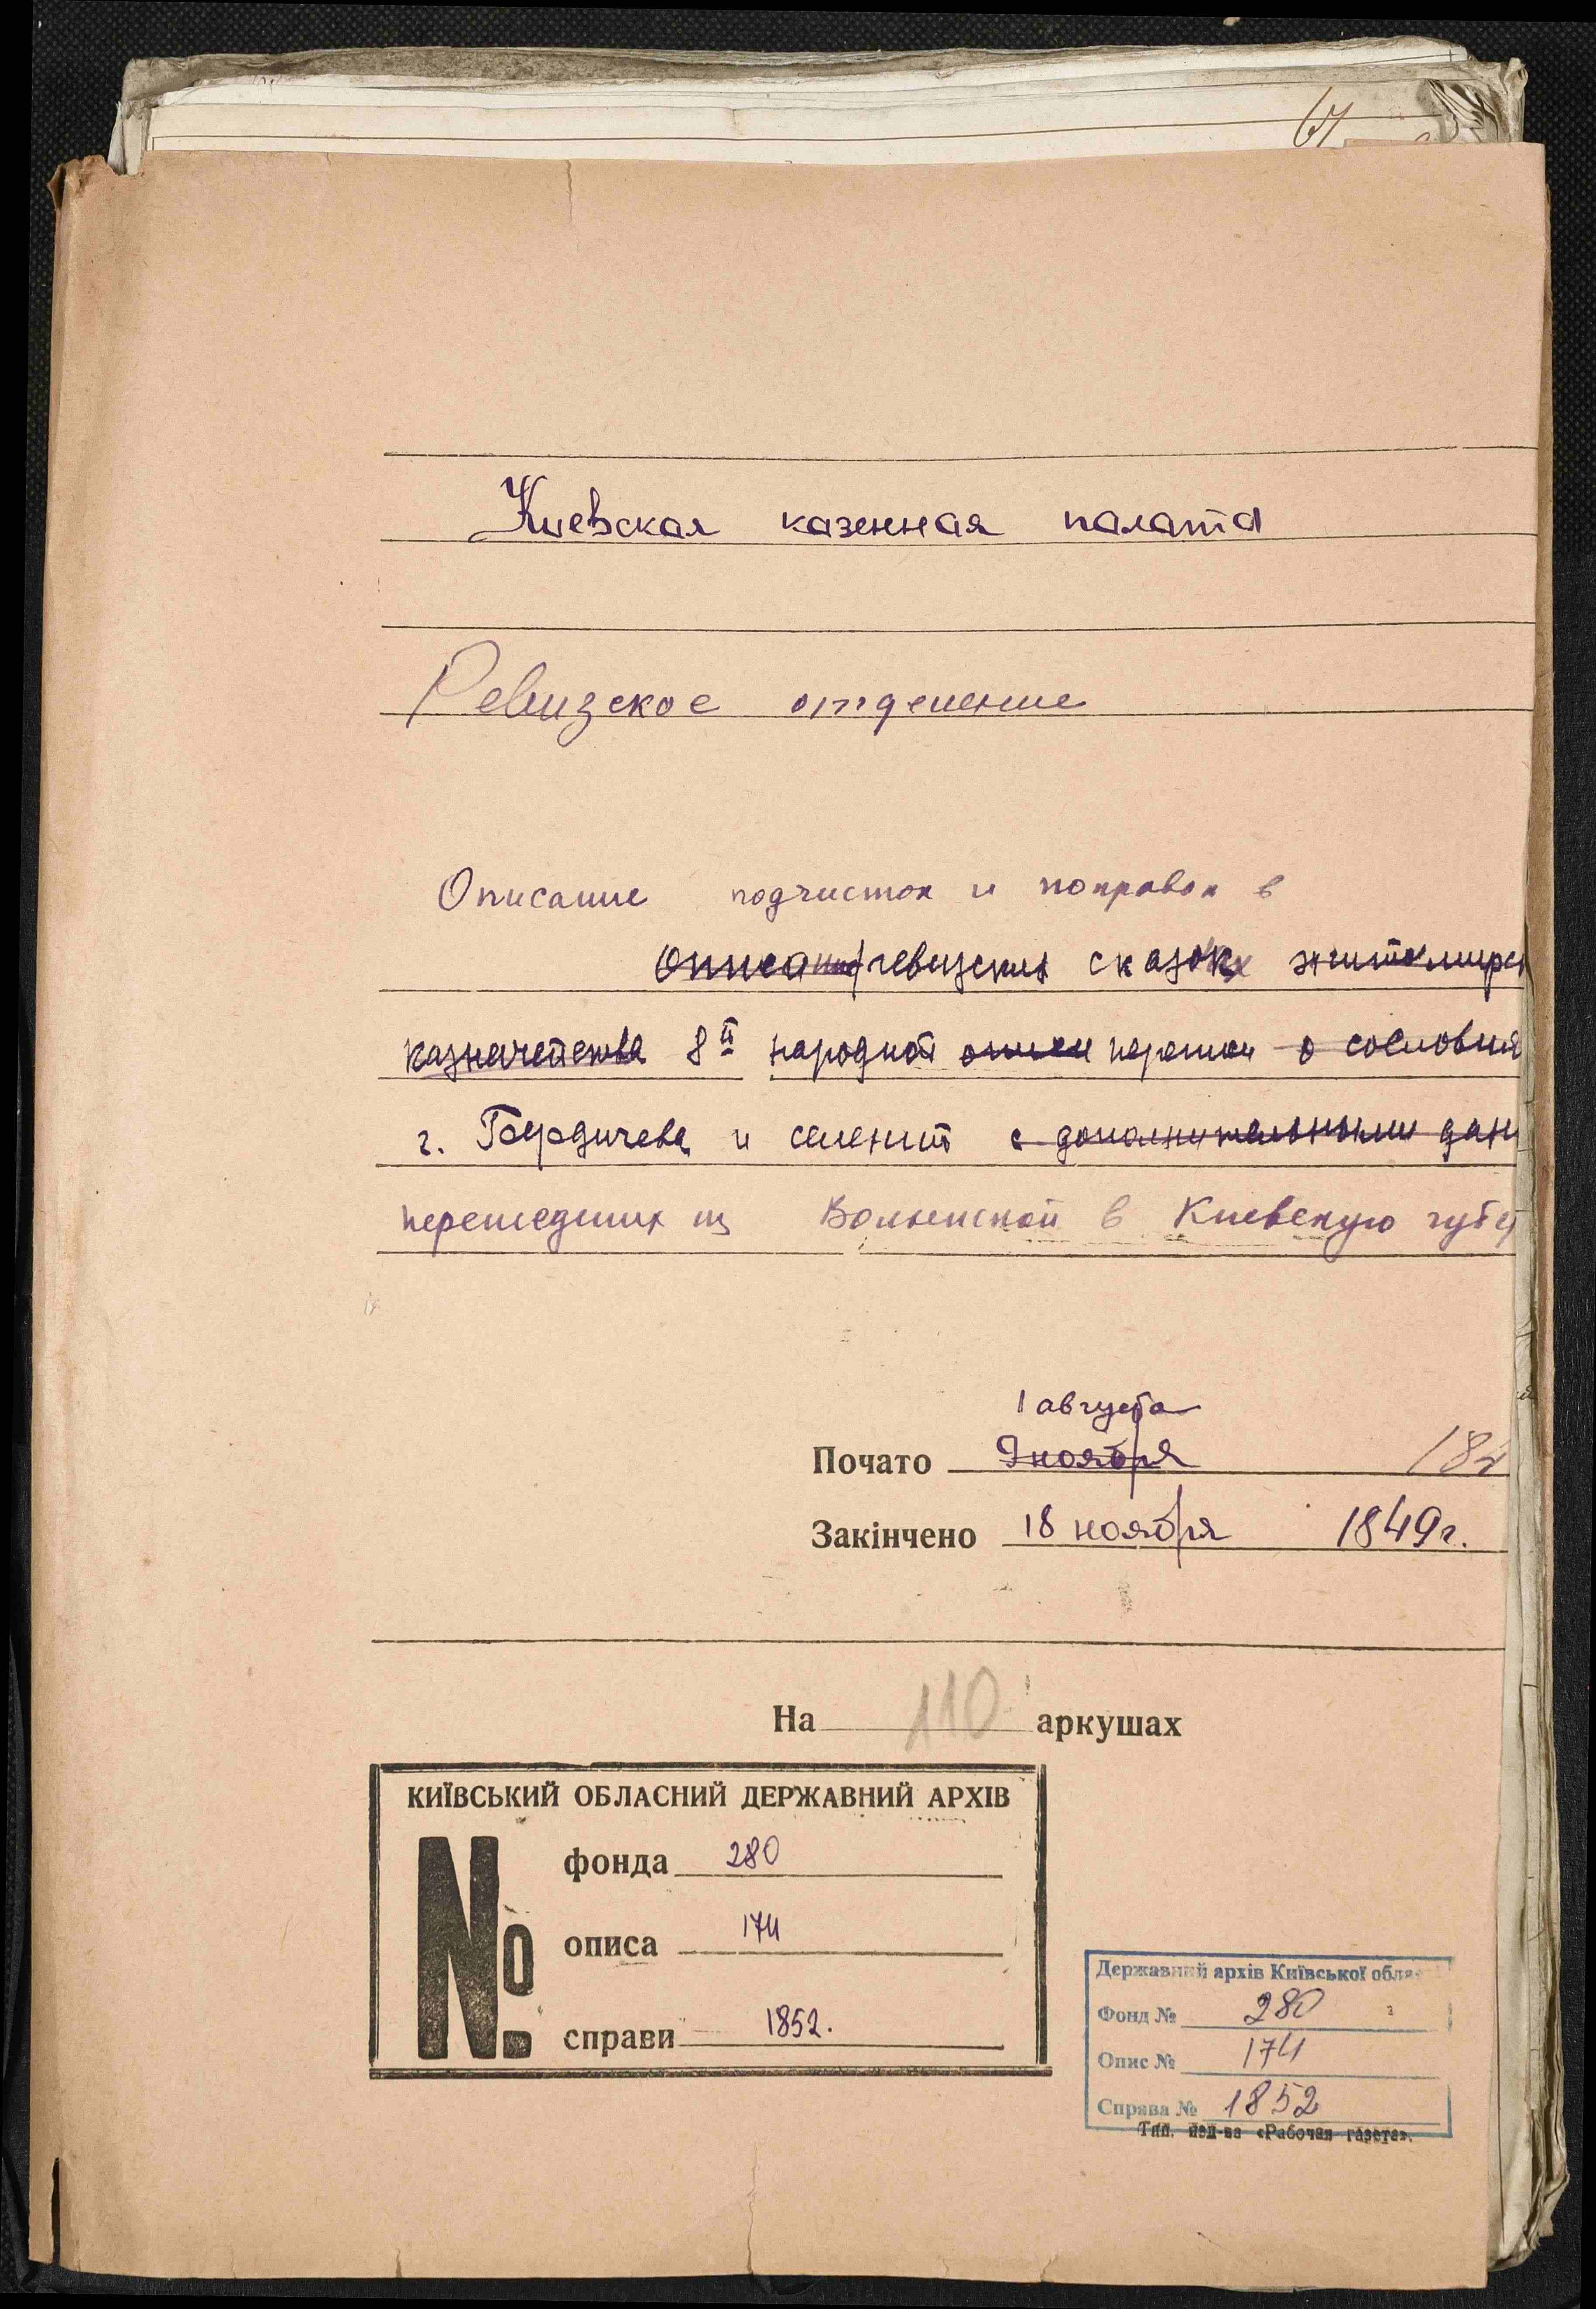 67
Киевская казенная палата
Ревизское отделение
Описание подчисток и поправок в
Описание ревизских сказках житомирск
казначейства 8й народной описи переписи о сословия
г. Бердичева и селений с дополнительными дан
перешедших из Волынской в Киевскую губер
1 августа
Почато 9 ноября 184
Закінчено 18 ноября 1849 г.
На 110 аркушах
КИЇВСЬКИЙ ОБЛАСНИЙ ДЕРЖАВНИЙ АРХІВ
№
фонда 280
описа 174
справи 1852.
Державний архів Київської облас
Фонд № 280
Опис № 174
Справа № 1852
Тип. изд-ва «Рабочая газета».